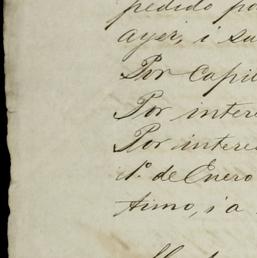 pedido po
ayer, i su
Por Capi
Por intere
Por intere
1º de Enero
timo, i a